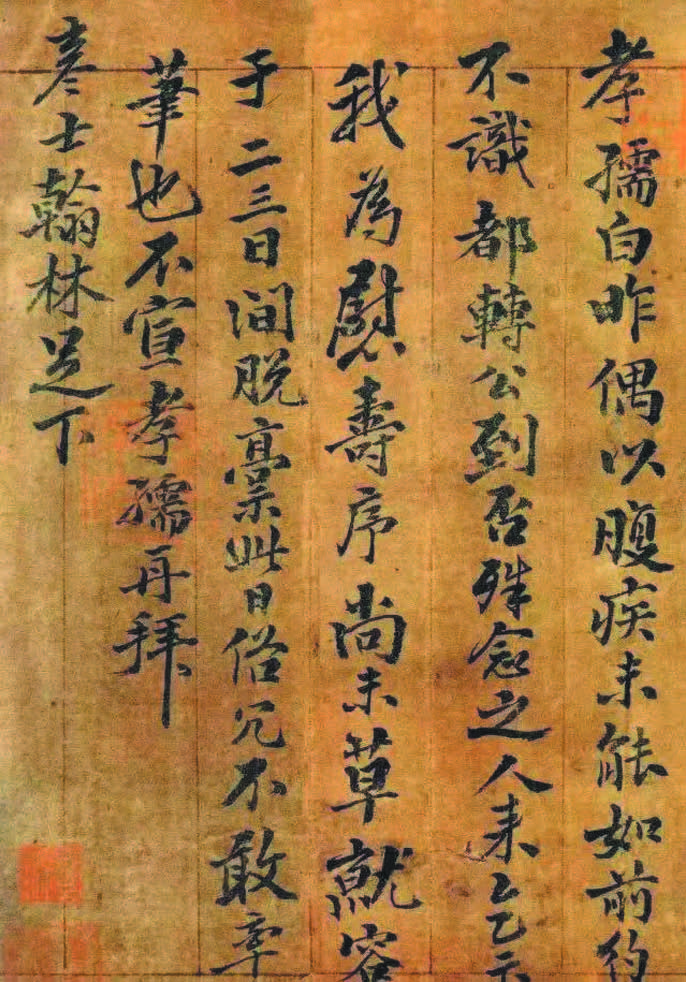 孝孺白昨偶以腹疾未能如前約
不識都轉公到否殊念之人來乞示
我為慰壽序尚未草就容
于二三日間脫稾此日俗冗不敢率
筆也不宣孝孺再拜
彥士翰林足下